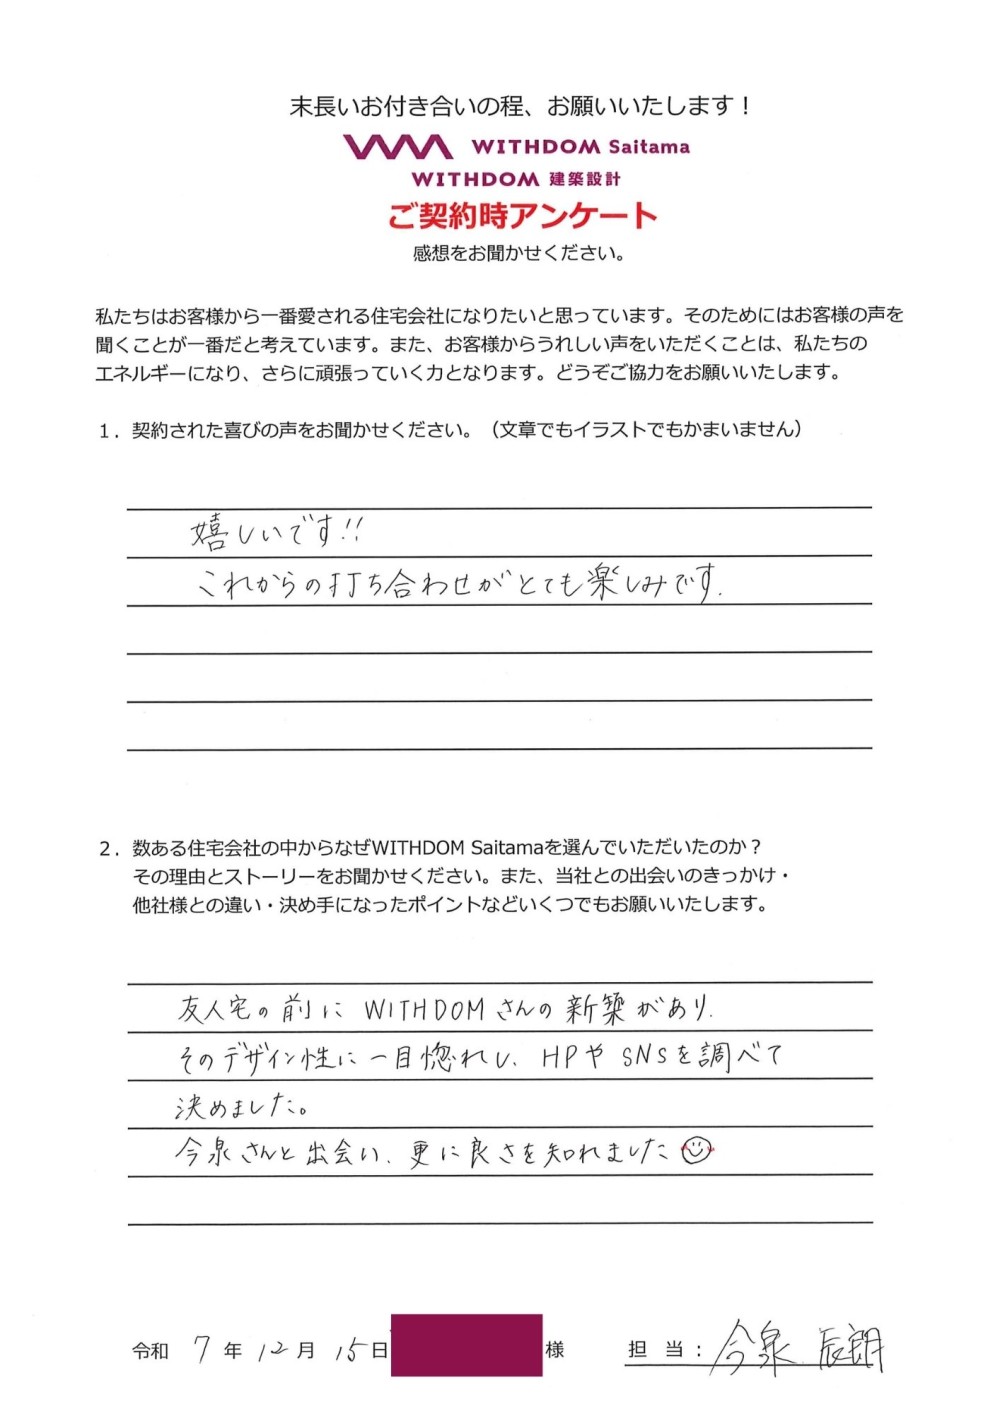 末長いお付き合いの程、お願いいたします！
WITHDOM Saitama
WITHDOM 建築設計
ご契約時アンケート
感想をお聞かせください。
私たちはお客様から一番愛される住宅会社になりたいと思っています。そのためにはお客様の声を
聞くことが一番だと考えています。また、お客様からうれしい声をいただくことは、私たちの
エネルギーになり、さらに頑張っていく力となります。どうぞご協力をお願いいたします。
１．契約された喜びの声をお聞かせください。（文章でもイラストでもかまいません）
嬉しいです!!
これからの打ち合わせがとても楽しみです.
２．数ある住宅会社の中からなぜWITHDOM Saitamaを選んでいただいたのか？
その理由とストーリーをお聞かせください。また、当社との出会いのきっかけ・
他社様との違い・決め手になったポイントなどいくつでもお願いいたします。
友人宅の前に WITHDOMさんの新築があり.
そのデザイン性に一目惚れし、HPや SNSを調べて
決めました。
今泉さんと出会い、更に良さを知れました
令和 7 年 12 月 15 日 様 担 当：今泉 辰朗